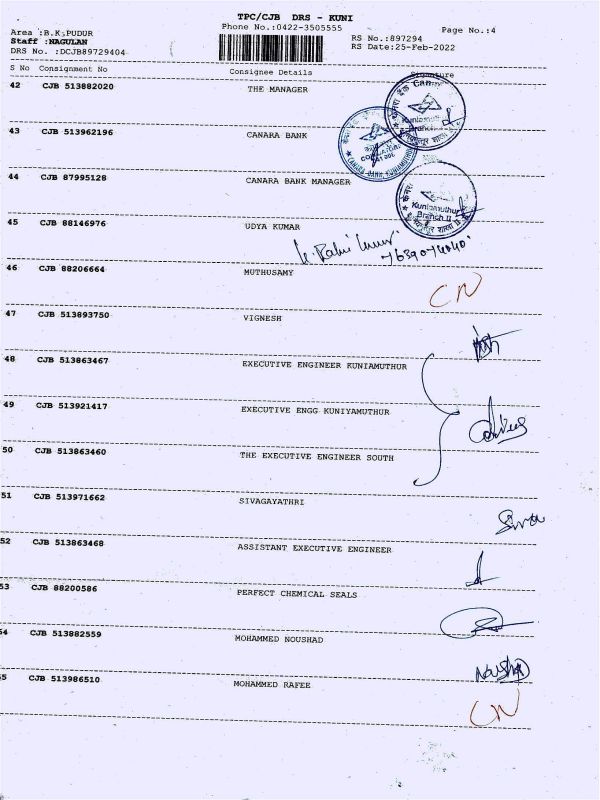 TPC/CJB DRS - KUNI
Phone No.:0422-3505555
Page No.:4
Area :B.K.PUDUR
RS No.:897294
Staff :NAGULAN
RS Date:25-Feb-2022
DRS No. :DCJB89729404
S No Consignment No Consignee Details Signature
42 CJB 513882020 THE MANAGER
43 CJB 513962196 CANARA BANK
44 CJB 87995128 CANARA BANK MANAGER
Kuniamuthur
Branch II
45 CJB 88146976 UDYA KUMAR
46 CJB 88206664 MUTHUSAMY
CN
47 CJB 513893750 VIGNESH
48 CJB 513863467 EXECUTIVE ENGINEER KUNIAMUTHUR
49 CJB 513921417 EXECUTIVE ENGG KUNIYAMUTHUR
50 CJB 513863460 THE EXECUTIVE ENGINEER SOUTH
51 CJB 513971662 SIVAGAYATHRI
52 CJB 513863468 ASSISTANT EXECUTIVE ENGINEER
53 CJB 88200586 PERFECT CHEMICAL SEALS
54 CJB 513882559 MOHAMMED NOUSHAD
55 CJB 513986510 MOHAMMED RAFEE
CN